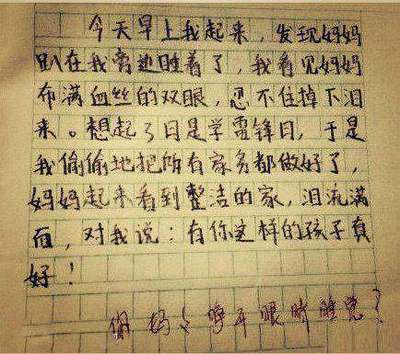 今天早上我起来，发现妈妈
趴在我旁边睡着了，我看见妈妈
布满血丝的双眼，忍不住掉下泪
来。想起了日是学雷锋日，于是
我偷偷地把所有家务都做好了，
妈妈起来看到整洁的家，泪流满
面，对我说：有你这样的孩子真
好！
你妈！睁开眼睛睡觉？